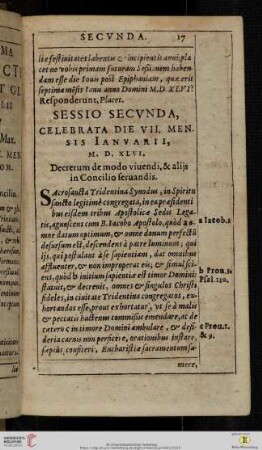 SECVNDA. 17
litæ festiuitates labentis & incipientis anni: pla
cet ne vobis primam futuram sessionem haben-
dam esse die Iouis post Epiphaniam, quæ erit
septima mensis Ianu. anno Domini M.D. XLVI?
Responderunt, Placet.
SESSIO SECVNDA,
CELEBRATA DIE VII. MEN-
SIS IANVARII,
M. D. XLVI.
Decretum de modo viuendi, & aliis
in Concilio seruandis.
SAcrosancta Tridentina Synodus, in Spiritu
sancto legitimè congregata, in ea præsidenti
bus eisdem tribus Apostolicæ Sedis Lega-
tis, agnoscens cum B. Iacobo Apostolo, quòd a o-
mne datum optimum, & omne donum perfectū
desursum est, descendens à patre luminum; qui
ijs, qui postulant à se sapientiam, dat omnibus
affluenter, & non improperat eis; & simul sci-
ens, quòd b initium sapientiæ est timor Domini:
statuit, & decreuit, omnes & singulos Christi
fideles, in ciuitate Tridentina congregatos, ex-
hortandos esse, prout exhortatur, vt se à malis
& peccatis hactenus commissis emendare, ac de
cætero c in timore Domini ambulare, & desi-
deria carnis non perficere, orationibus instare,
sæpius confiteri, Eucharistiæ sacramentum su-
mere,
a Iacob.1
b Prou.1.
Psal.110.
c Prou.1.
& 9.